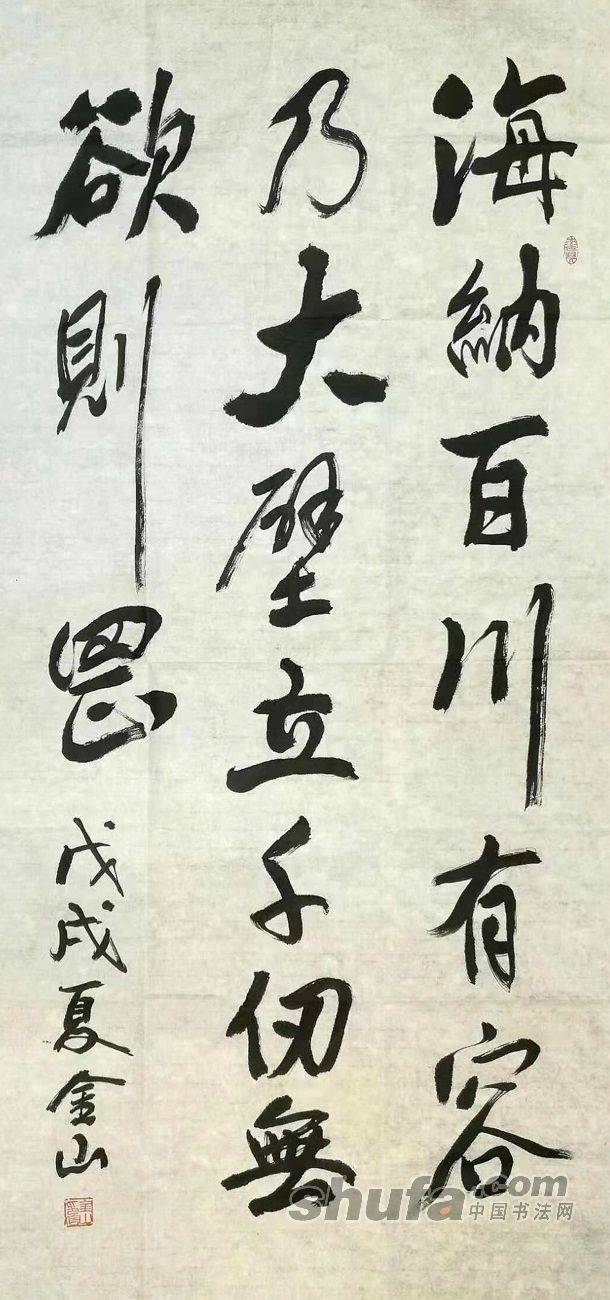 海納百川有容
乃大壁立千仞無
欲則罡 戊戌夏金山
shufa.com
中国书法网